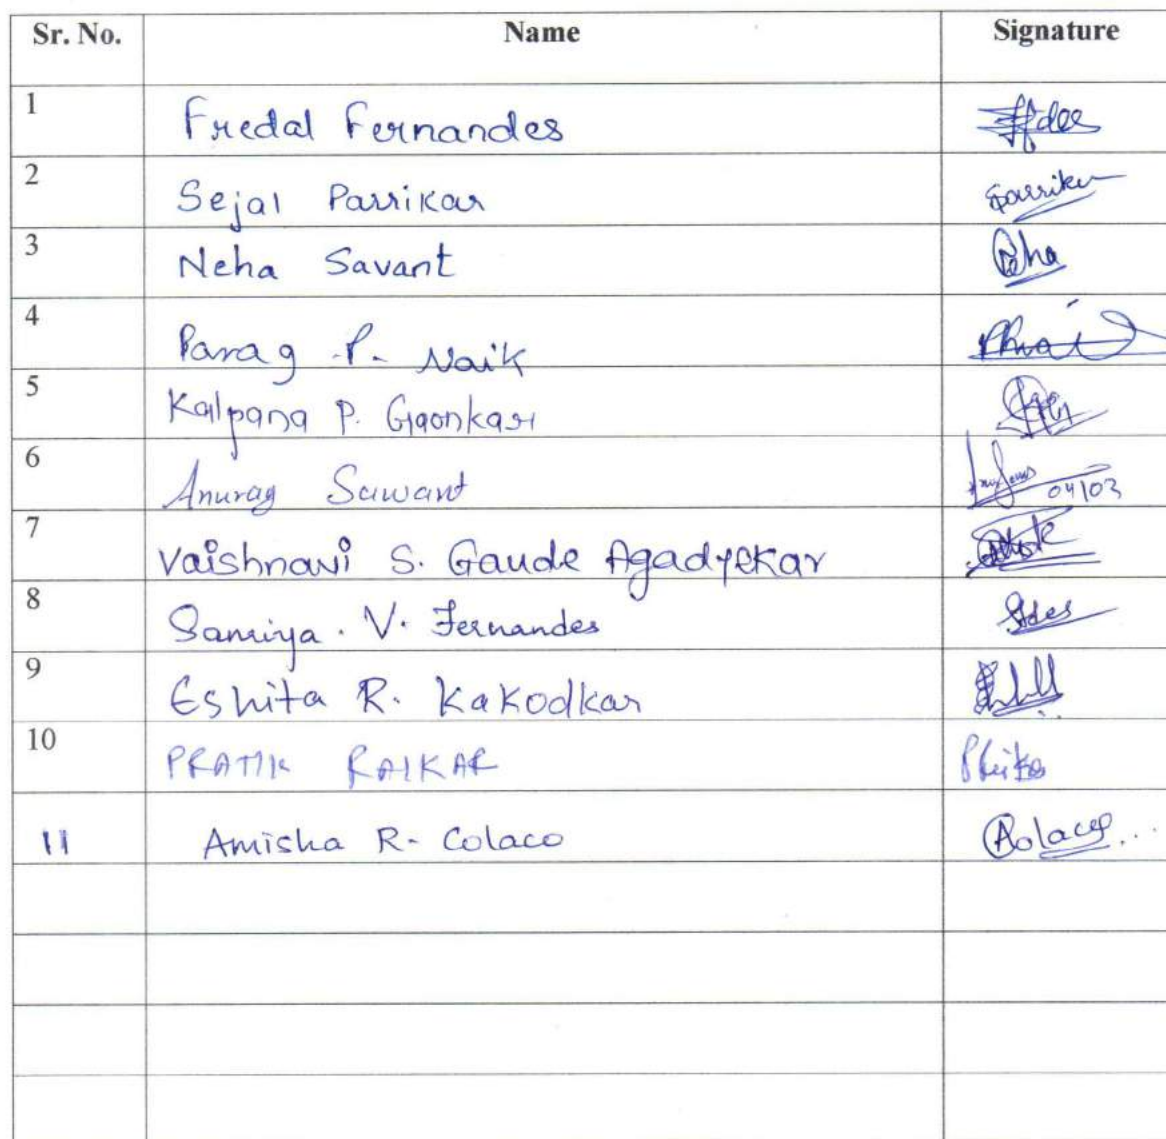 Sr. No. Name Signature
1 Fredal Fernandes
2 Sejal Parrikar Parrikar
3 Neha Savant Neha
4 Parag .P. Naik
5 Kalpana P. Gaonkar
6 Anurag Sawant 04/03
7 Vaishnavi S. Gaude Agadyekar
8 Samiya . V. Fernandes
9 Eshita R. Kakodkar
10 PRATIK RAIKAR
11 Amisha R. Colaco Colaco